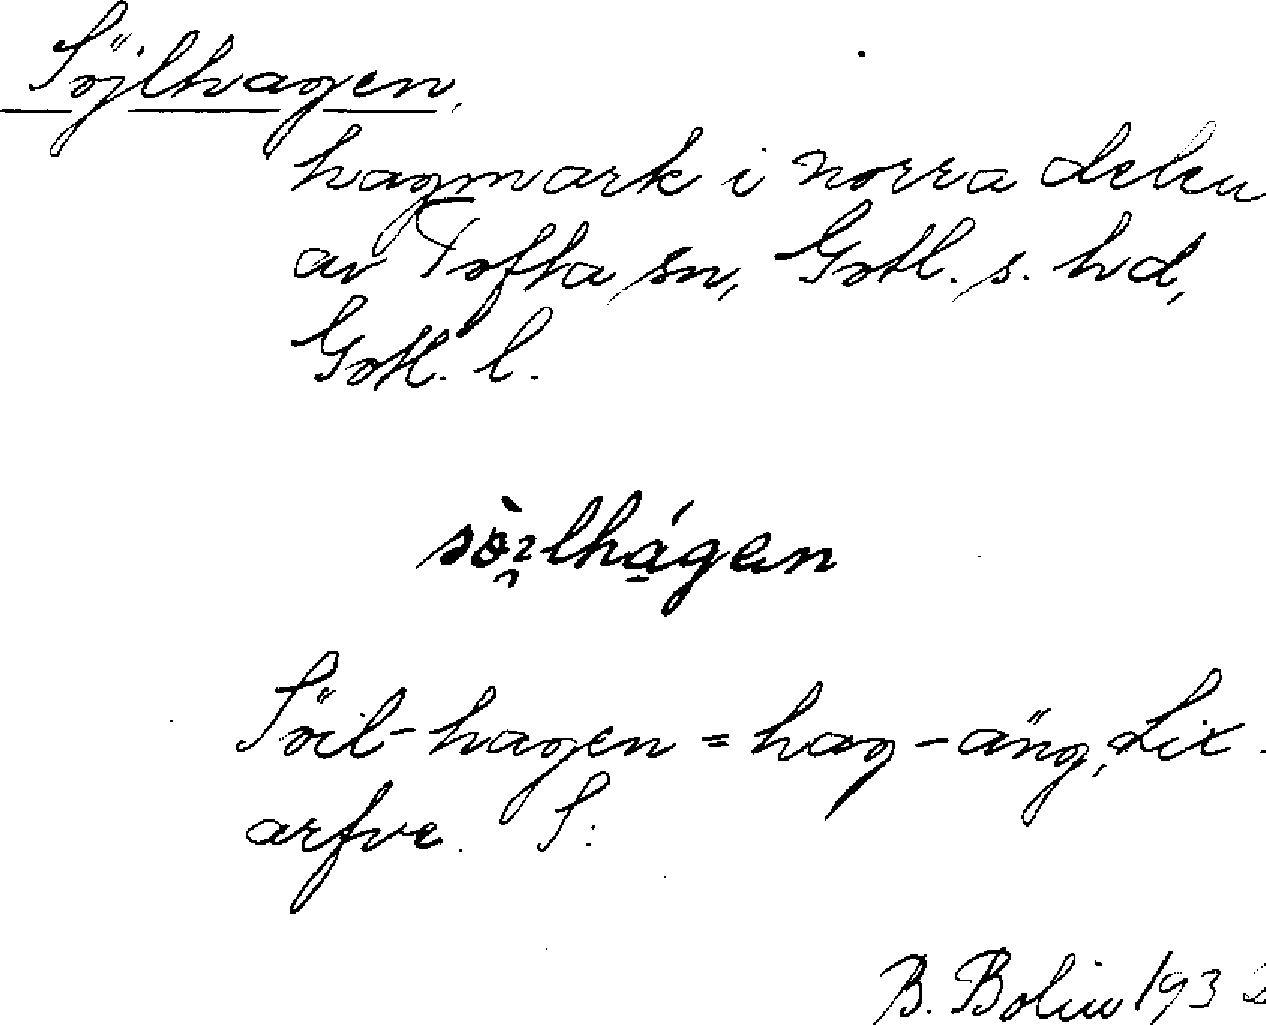 Söjlhagen,
hagmark i norra delen
av Tofta sn, Gotl. s. hd,
Gotl. l.
Söil-hagen = hag-äng, Lix-
arfve. S:
B. Bolin 1932